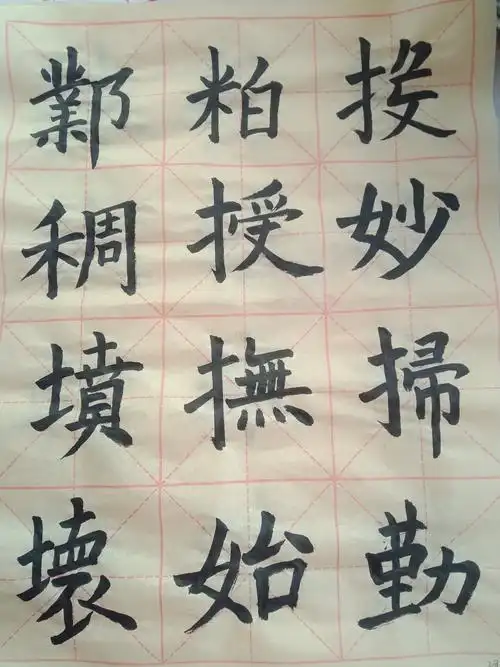 投妙掃勤
粕授撫始
鄴稠墳壞